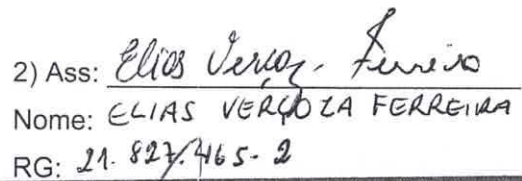 2) Ass: Elias Verçoz. Ferreira
Nome: ELIAS VERÇOZA FERREIRA
RG: 21.827.465-2